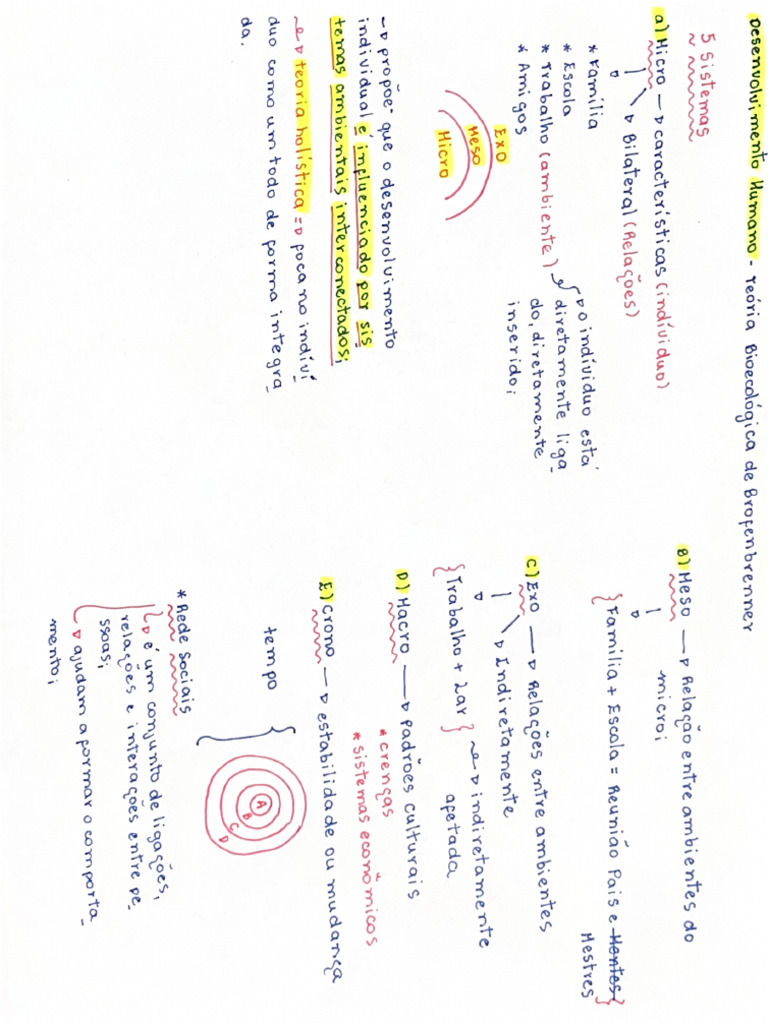 Desenvolvimento Humano - Teória Bioecológica de Brofenbrenner
5 Sistemas
a) Micro → características (indíviduo)
→ Bilateral (Relações)
* Família
* Escola
* Trabalho (ambiente)
* Amigos
→ o indíviduo está
diretamente liga
do, diretamente
inserido;
Exo
Meso
Micro
→ propõe que o desenvolvimento
individual é influenciado por sis
temas ambientais interconectados;
→ teoria holística => foca no indíví
duo como um todo de forma integra
da.
B) Meso → Relação entre ambientes do
micro;
{Família + Escola = Reunião Pais e Mentes}
Mestres
C) Exo → Relações entre ambientes
→ Indiretamente
{Trabalho + Lar} → indiretamente
afetada
D) Macro → Padrões culturais
* crenças
* sistemas econômicos
E) Crono → estabilidade ou mudança
tempo
A
B
C
D
* Rede Sociais
→ é um conjunto de ligações,
relações e interações entre pe
ssoas;
→ ajudam a formar o comporta
mento;